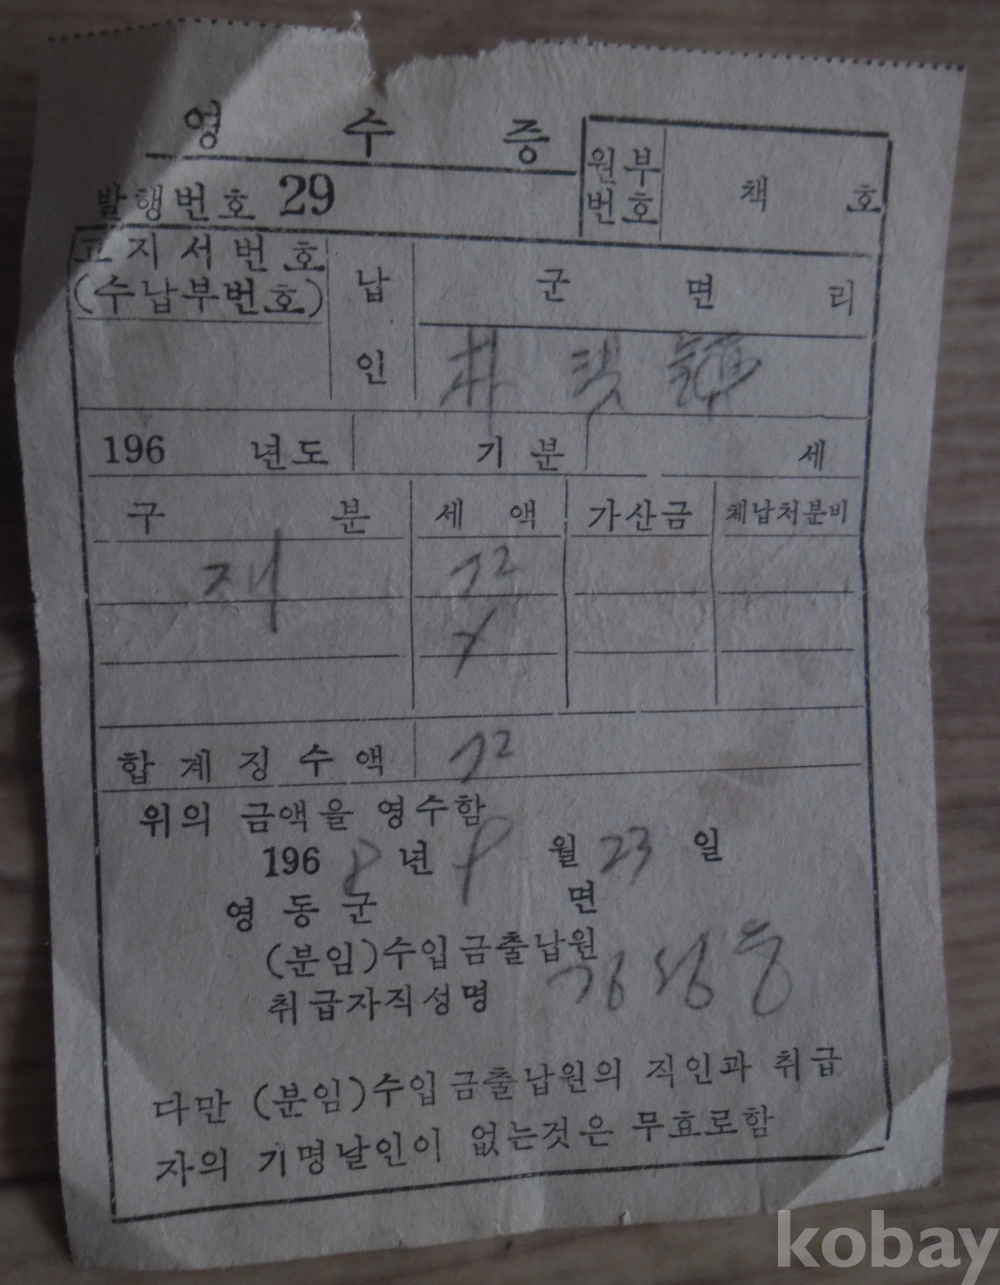 영 수 증
원부번호 책 호
발행번호 29
고지서번호
(수납부번호)
납 군 면 리
인 朴
196 년도 기분 세
구 분 세 액 가산금 체납처분비
재 72
합 계 징 수 액 72
위의 금액을 영수함
196 8 년 8 월 23 일
영 동 군 면
(분임)수입금출납원
취급자직성명
다만 (분임)수입금출납원의 직인과 취급
자의 기명날인이 없는것은 무효로함
kobay